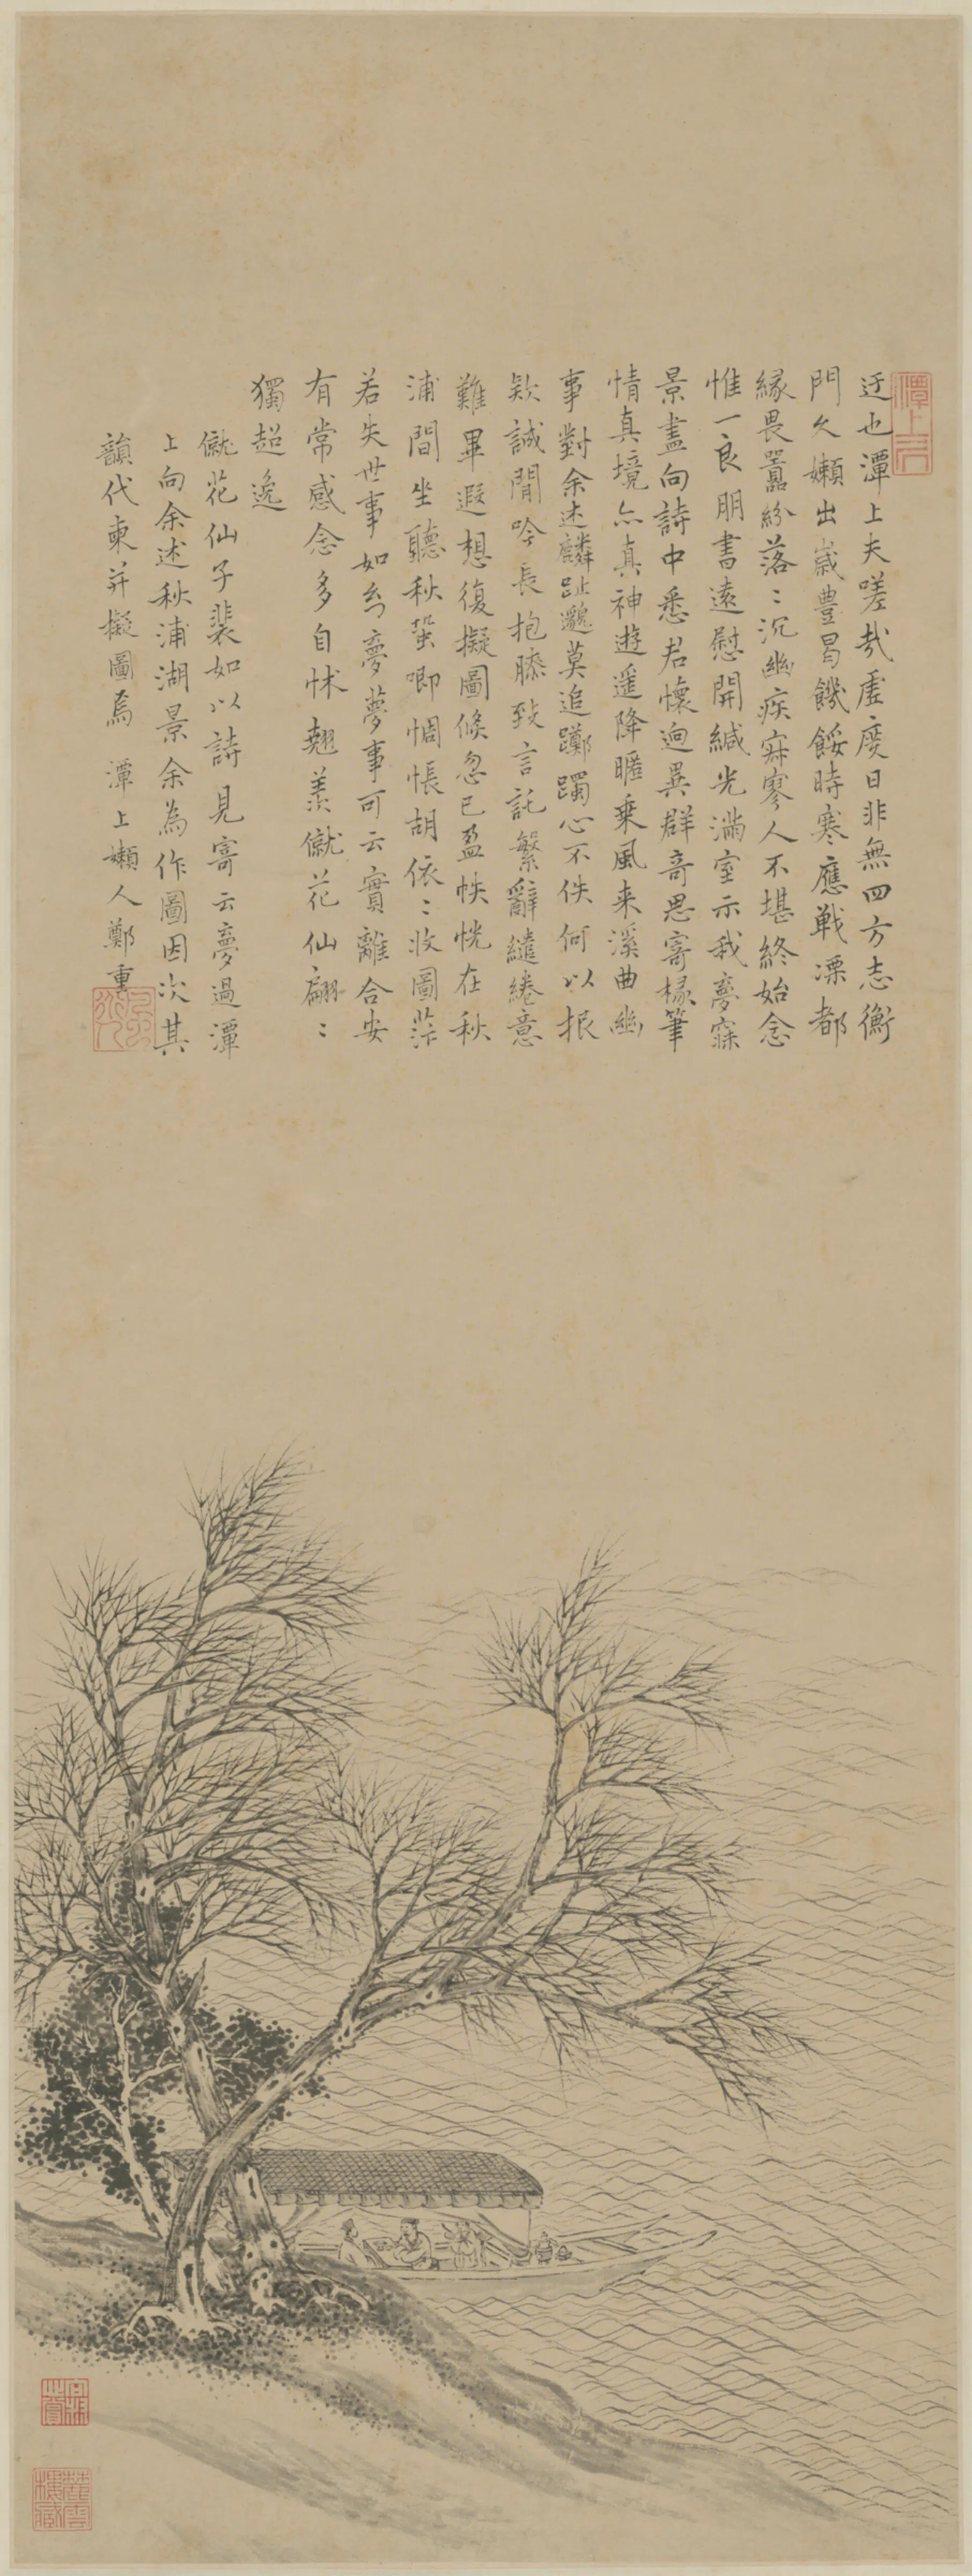 迂也潭上夫嗟哉虛度日非無四方志衡
門久嬾出歲豐曷饑餒時寒應戰凓都
緣畏囂紛落〻沉幽疾寂寥人不堪終始念
惟一良朋書遠慰開緘光滿室示我夢寐
景盡向詩中悉君懷迥異群奇思寄椽筆
情真境亦真神遊遥降暱乗風来溪曲幽
事對余述麟趾邈莫追躑躅心不佚何以报
欵誠閒吟長抱膝致言託繁辭繾綣意
難畢遐想復擬圖倐忽已盈帙恍在秋
浦間坐聽秋蛩唧惆悵胡依〻收圖茫
若失世事如幻夢夢事可云實離合安
有常感念多自怵翹羨僦花仙翩〻
獨超逸
僦花仙子裴如以詩見寄云夢過潭
上向余述秋浦湖景余為作圖因次其
韻代柬并擬圖焉　潭上嬾人鄭重
潭上居